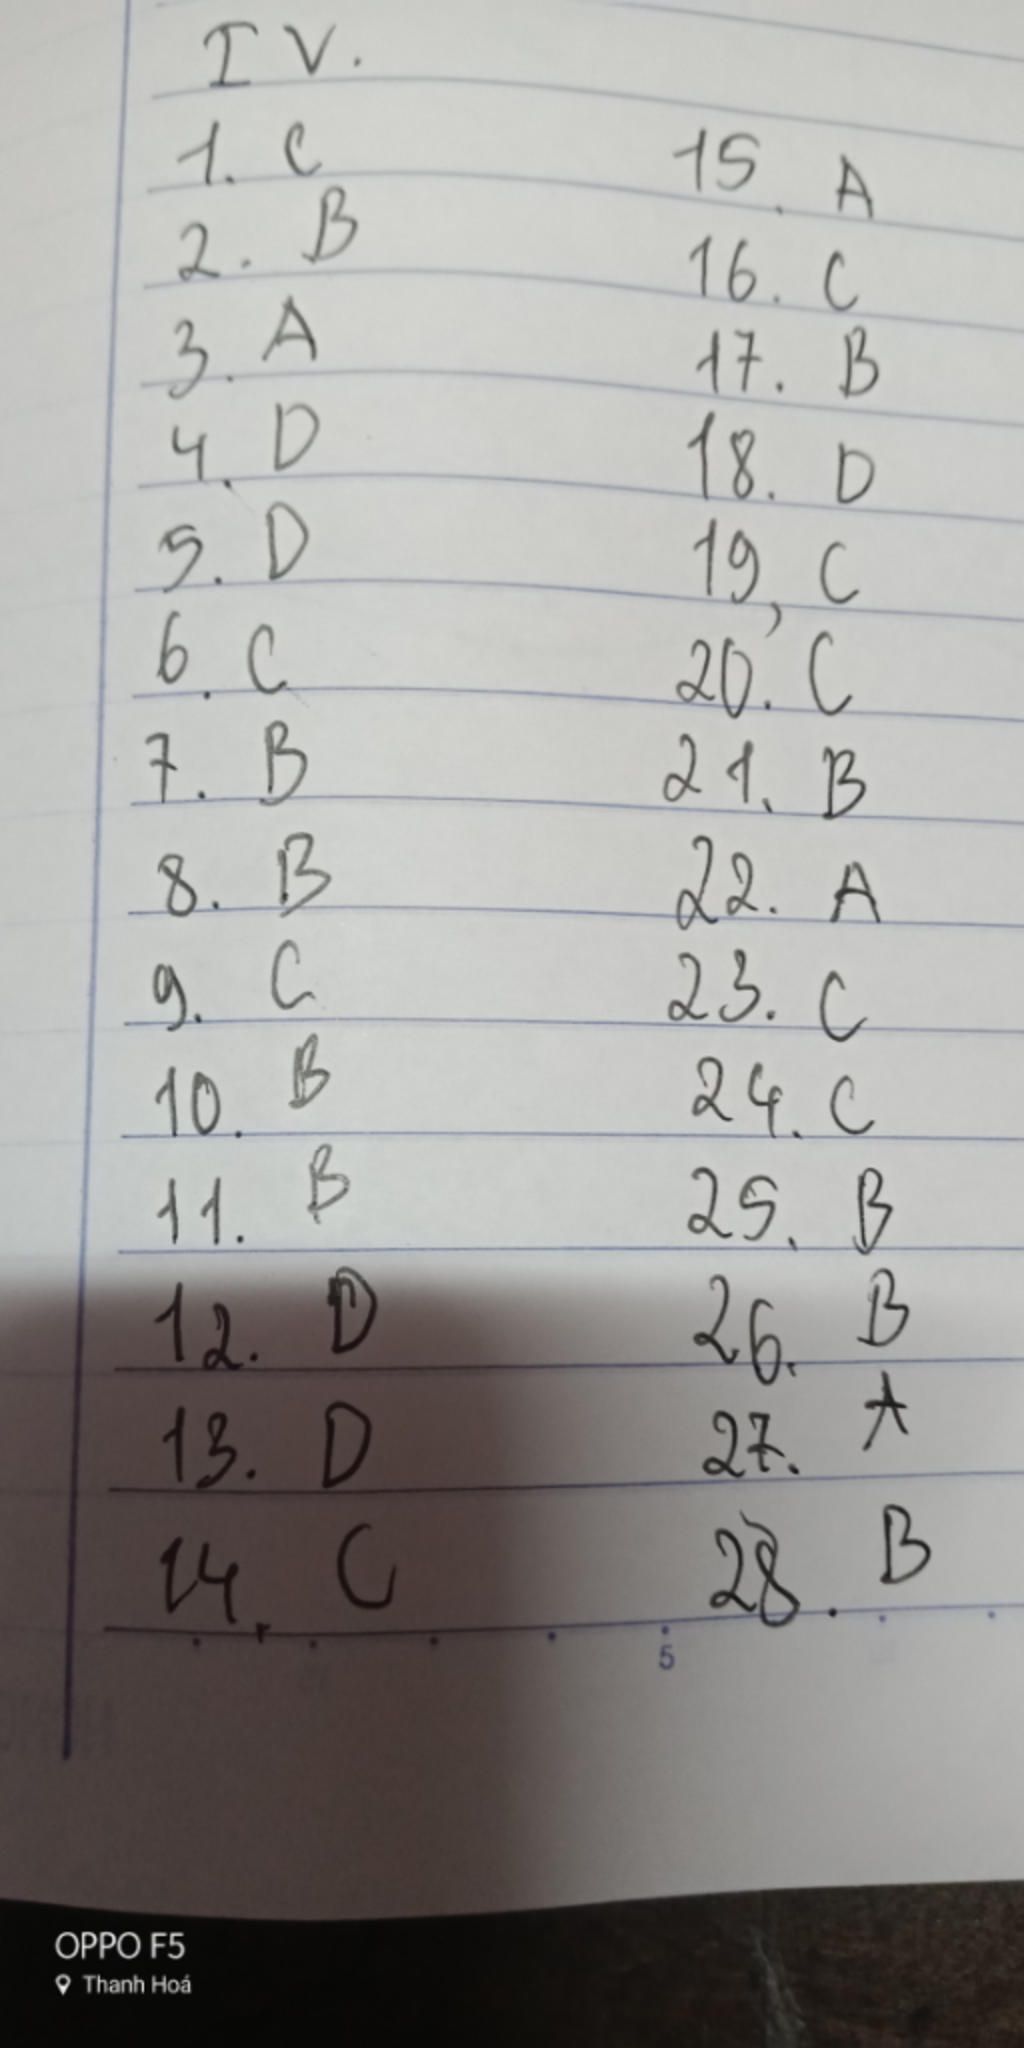 IV.
1. C
2. B
3. A
4. D
5. D
6. C
7. B
8. B
9. C
10. B
11. B
12. D
13. D
14. C
15. A
16. C
17. B
18. D
19, C
20. C
21. B
22. A
23. C
24. C
25. B
26. B
27. A
28. B
5
OPPO F5
Thanh Hoá